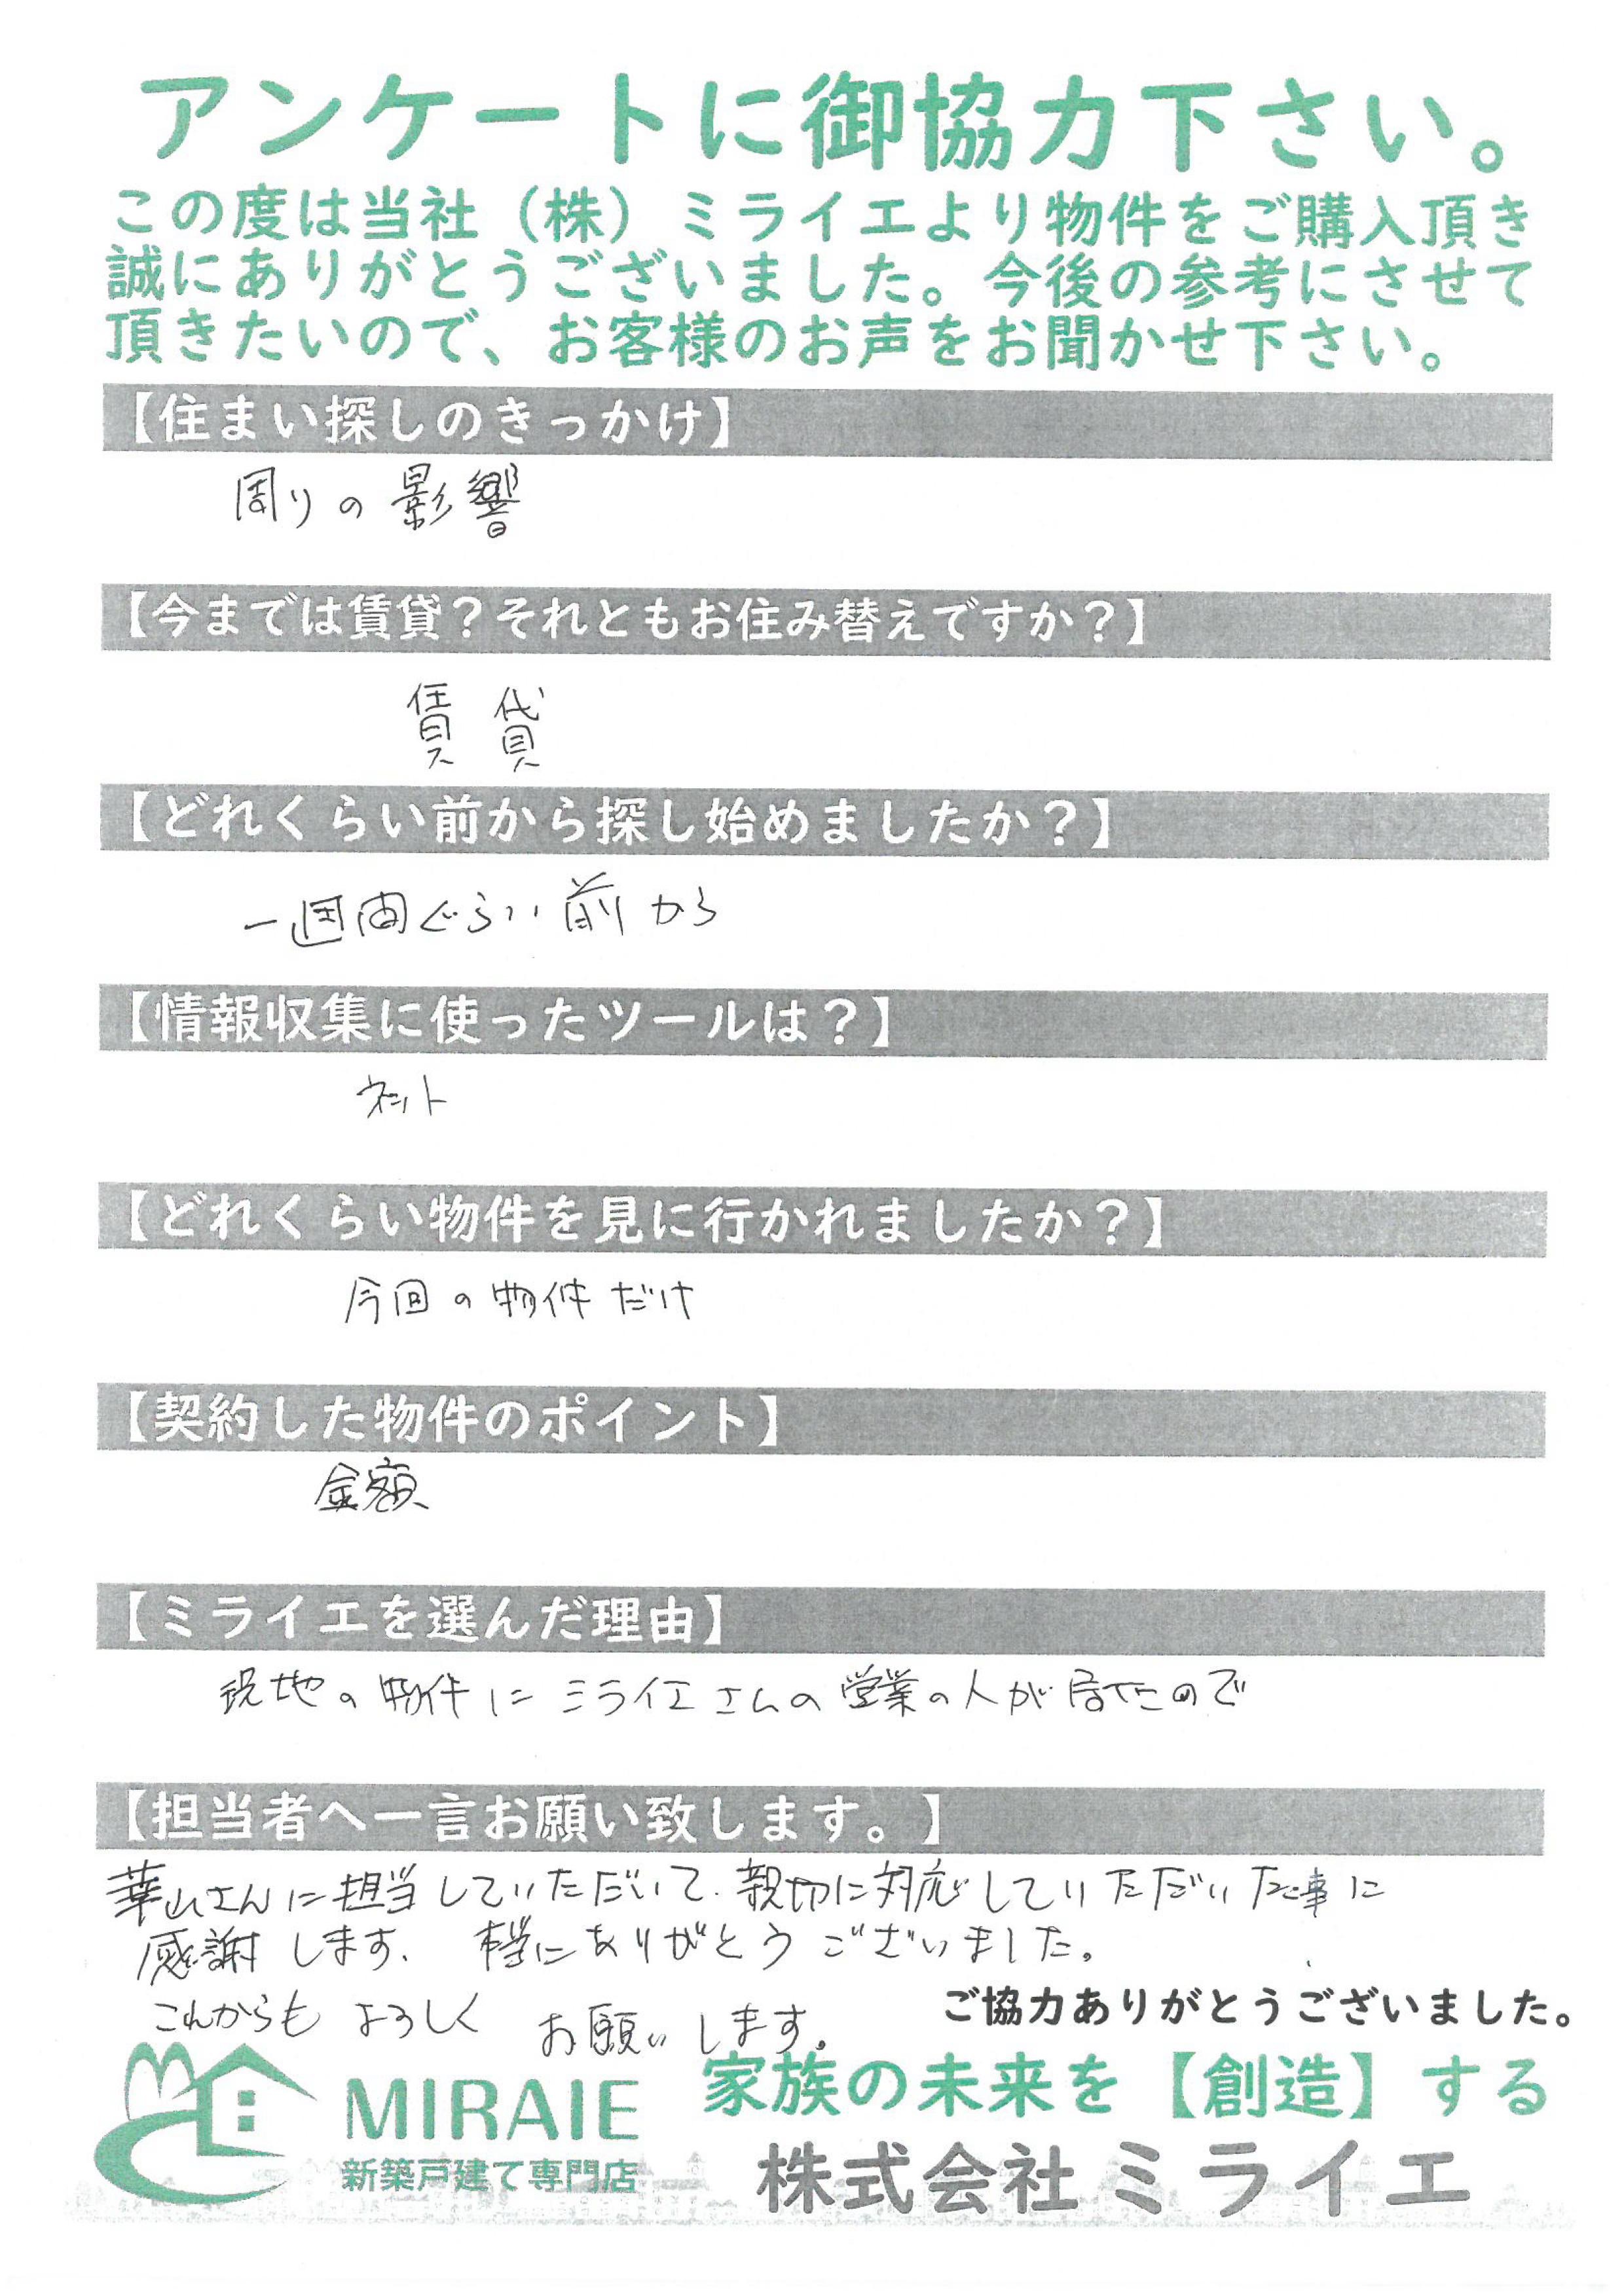 アンケートに御協力下さい。
この度は当社（株）ミライエより物件をご購入頂き
誠にありがとうございました。今後の参考にさせて
頂きたいので、お客様のお声をお聞かせ下さい。
【住まい探しのきっかけ】
周りの影響
【今までは賃貸？それともお住み替えですか？】
賃貸
【どれくらい前から探し始めましたか？】
一週間ぐらい前から
【情報収集に使ったツールは？】
ネット
【どれくらい物件を見に行かれましたか？】
今回の物件だけ
【契約した物件のポイント】
金額
【ミライエを選んだ理由】
現地の物件にミライエさんの営業の人が居てたので
【担当者へ一言お願い致します。】
華山さんに担当していただいて、親切に対応していただいた事に
感謝します、本当にありがとうございました。
これからもよろしくお願いします。
ご協力ありがとうございました。
MIRAIE
新築戸建て専門店
家族の未来を【創造】する
株式会社ミライエ